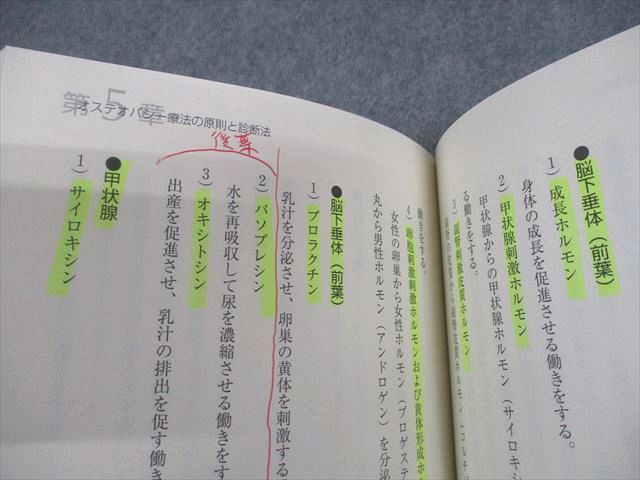 ●脳下垂体（前葉）
1）成長ホルモン
身体の成長を促進させる働きをする。
2）甲状腺刺激ホルモン
甲状腺からの甲状腺ホルモン（サイロキシ
る働きをする。
3）副腎刺激皮質ホルモン
副腎の皮質から副腎皮質ホルモン（コルチ
働きをする。
4）卵胞刺激刺激ホルモンおよび黄体形成ホ
女性の卵巣から女性ホルモン（プロゲステ
丸から男性ホルモン（アンドロゲン）を分
第5章
オステオパシー療法の原則と診断法
●脳下垂体（前葉）
1）プロラクチン
乳汁を分泌させ、卵巣の黄体を刺激する
後葉
2）バソプレシン
水を再吸収して尿を濃縮させる働きをす
3）オキシトシン
出産を促進させ、乳汁の排出を促す働き
●甲状腺
1）サイロキシン